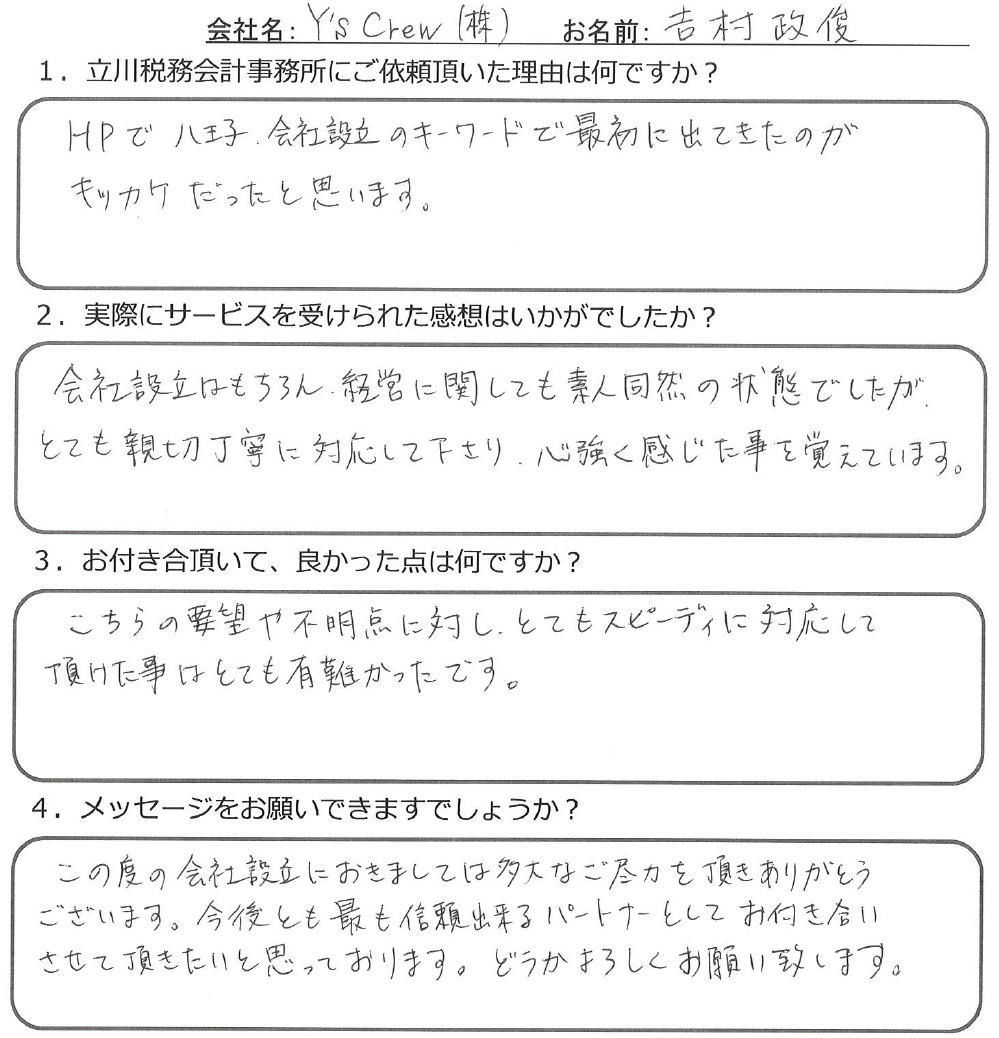 会社名: Y's Crew (株) お名前: 吉村 政俊
1．立川税務会計事務所にご依頼頂いた理由は何ですか？
HPで 八王子、会社設立のキーワードで最初に出てきたのが
キッカケだったと思います。
2．実際にサービスを受けられた感想はいかがでしたか？
会社設立はもちろん、経営に関しても素人同然の状態でしたが、
とても親切丁寧に対応して下さり、心強く感じた事を覚えています。
3．お付き合頂いて、良かった点は何ですか？
こちらの要望や不明点に対し、とてもスピーディに対応して
頂けた事はとても有難かったです。
4．メッセージをお願いできますでしょうか？
この度の会社設立におきましては多大なご尽力を頂きありがとう
ございます。今後とも最も信頼出来るパートナーとしてお付き合い
させて頂きたいと思っております。どうかよろしくお願い致します。